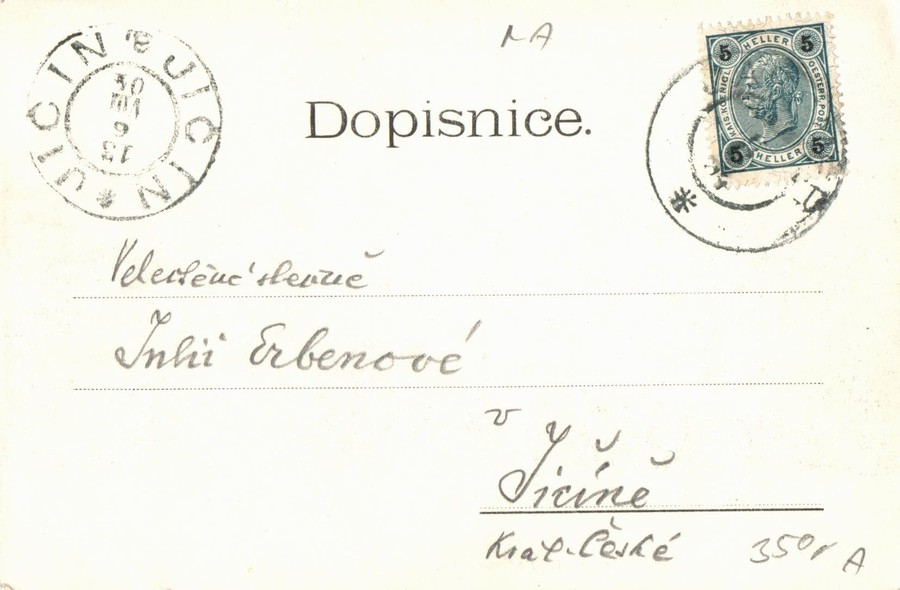 JIČIN a JIČIN *
13
6
VIII
Dopisnice.
5 HELLER 5
KAIS. KOENIGL. OESTERR. POST
5 HELLER 5
Velectěné slečně
Julii Erbenové
v
Jičíně
Král. České
350,-
A